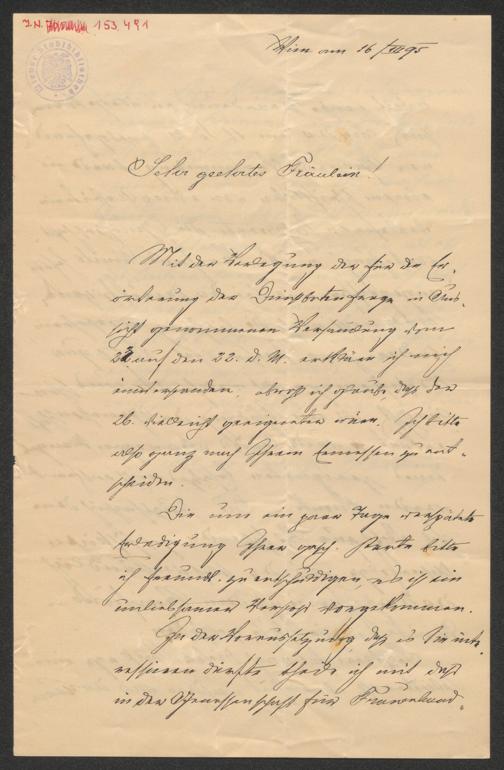 J.N. 153.491
Wiener Stadtbibliothek
Wien am 16/III 95
Sehr geehrtes Fräulein!
Mit der Verlegung der für die Er-
örterung der Dienstbotenfrage in Aus-
sicht genommenen Versammlung vom
23 auf den 22. d. M. erkläre ich mich
einverstanden, obwohl ich glaube, daß der
26. vielleicht geeigneter wäre. Ich bitte
also ganz nach Ihrem Ermessen zu ent-
scheiden.
Die um ein paar Tage verspätete
Erledigung Ihrer gesch. Karte bitte
ich freundl. zu entschuldigen, es ist ein
unliebsamer Verstoß vorgekommen.
In der Voraussetzung, daß es Sie inte-
ressieren dürfte theile ich mit daß
in der Genossenschaft für